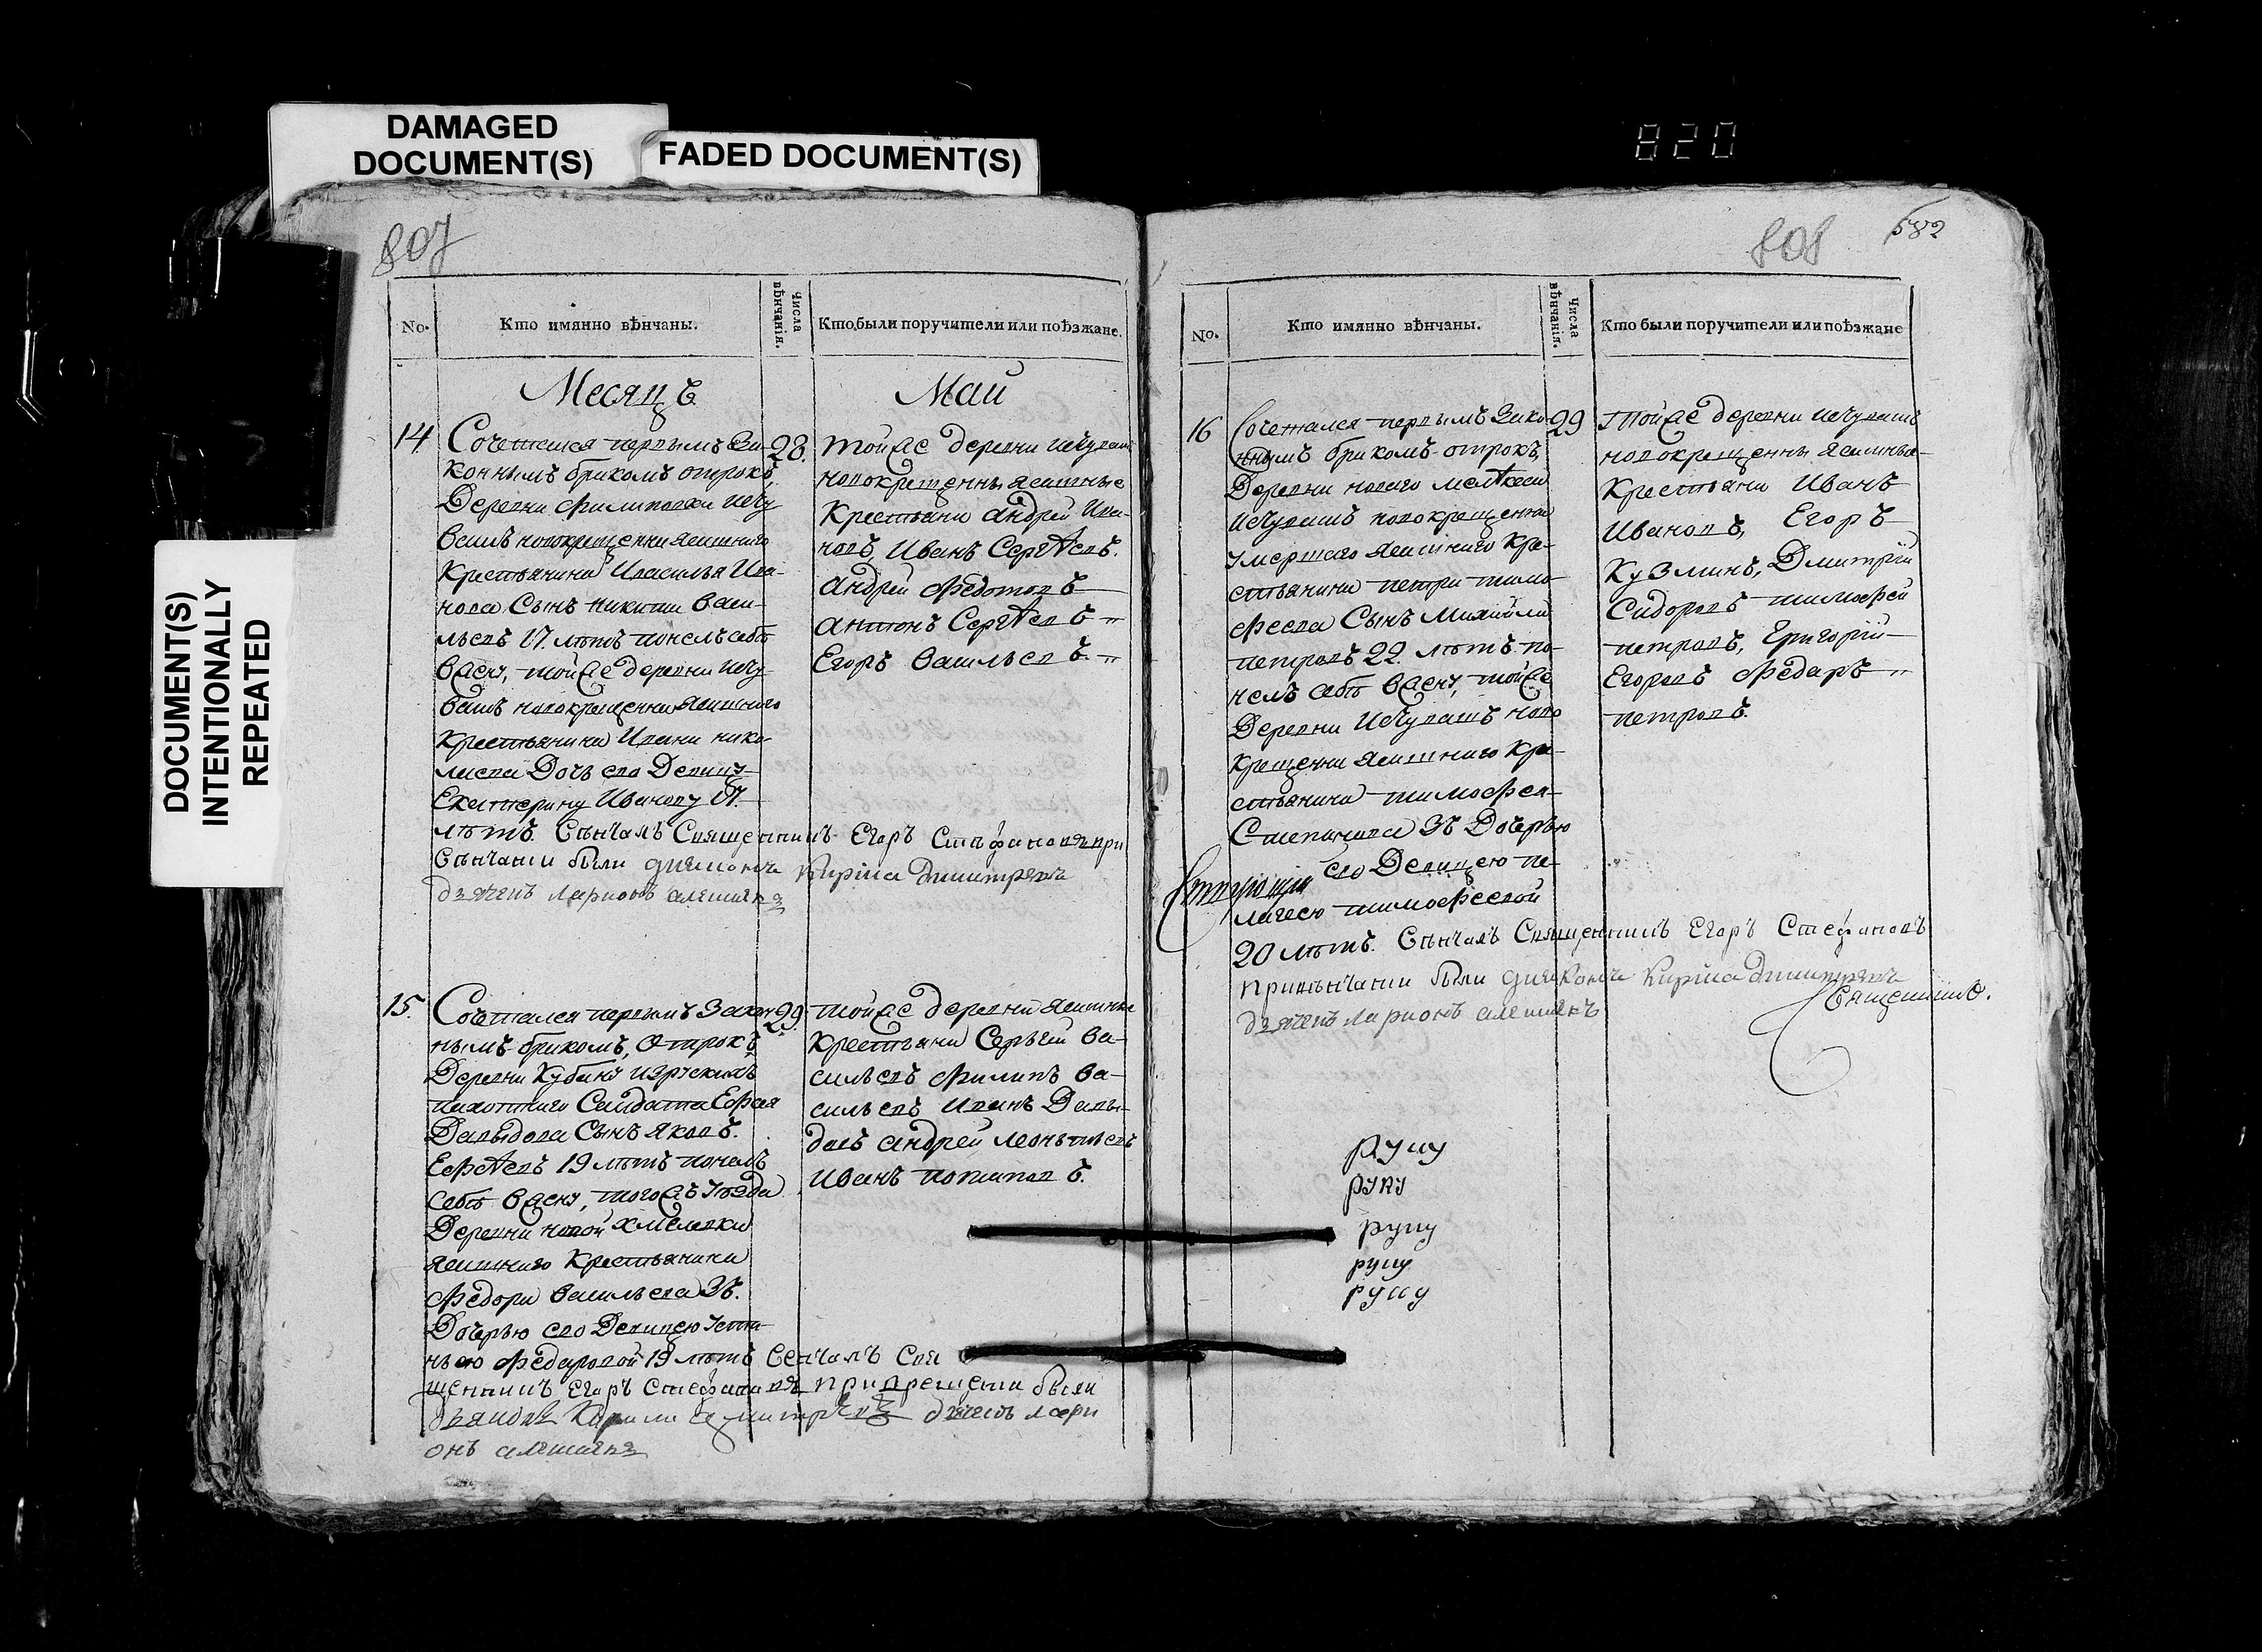 DAMAGED
DOCUMENT(S)
FADED DOCUMENT(S)
DOCUMENT(S)
INTENTIONALLY
REPEATED
820
807
No.
Кто имянно вѣнчаны.
Числа
вѣнчанія.
Кто были поручители или поѣзжане.
Месяцъ
Май
14
Сочетался первымъ За-
коннымъ бракомъ отрокъ,
Деревни Филиповки изчу
вашъ новокрещенна ясашнаго
Крестьянина Василья Ива-
нова Сынъ никита Васи-
льевъ 17. лѣтъ понелъ себѣ
Вжену, тойже деревни изчу
вашъ новокрещенна ясашнаго
Крестьянина Ивана нико-
лаева Дочь ево Девицу
Екатерину Иванову 17.
лѣтъ. Венчалъ Священникъ Егоръ Стефановъ при
венчании были диаконъ Кирила Дмитревъ
дьячекъ ларионъ алексеевъ
28.
тойже деревни изчуваш
новокрещенны ясашные
Крестьяна андрей Ива-
новъ, Иванъ Сергѣевъ.
андрей Федотовъ
антонъ Сергѣевъ
Егоръ Васильевъ.
15.
Сочетался первымъ Закон
нымъ бракомъ, Отрокъ
Деревни Кубани изрускихъ
пахотнаго Салдата Ефрея
Давыдова Сынъ Яковъ.
Ефрѣевъ 19 лѣтъ понелъ
себѣ Вжену, тогожъ уезда
Деревни новой хмелевки
ясашнаго Крестьянина
Федора Васильева Зъ.
Дочерью ево Девицею усти-
ньею Федаровой 19 лѣтъ Венчалъ Свя
щенникъ Егоръ Стефановъ при
были
Кирила Дмитревъ дьячекъ лари
онъ
29.
тойже деревни ясашны
крестьяна Сергѣй Ва-
сильевъ Филипъ Ва-
сильевъ Иванъ Давы-
довъ андрей леонтьевъ
Иванъ потаповъ.
808
582
No.
Кто имянно вѣнчаны.
Числа
вѣнчанія.
Кто были поручители или поѣзжане
16
Сочетался первымъ Зако
ннымъ бракомъ отрокъ,
Деревни новаго
изчувашъ новокрещенна
умершаго ясашнаго Кре-
стьянина петра тимо
феева Сынъ Михайла
петровъ 22. лѣтъ по-
нелъ себѣ Вжену, тойже
Деревни Изчувашъ ново
крещенна ясашнаго Кре-
стьянина тимофея
Степанова Зъ Дочерью
ево Девицею пе-
лагеею тимофеевой
20 лѣтъ. Венчалъ Священникъ Егоръ Стефановъ
привѣнчании были диаконъ Кирила Дмитревъ
дьячекъ ларионъ алексеевъ
Священникъ.
29
тойже деревни изчувашъ
новокрещенны ясашныя
Крестьяна Иванъ
Ивановъ, Егоръ
Кузминъ, Дмитрій
Сидоровъ тимофей
петровъ, Григорій
Егоровъ Федаръ
петровъ.
руку
руку
руку
руку
руку